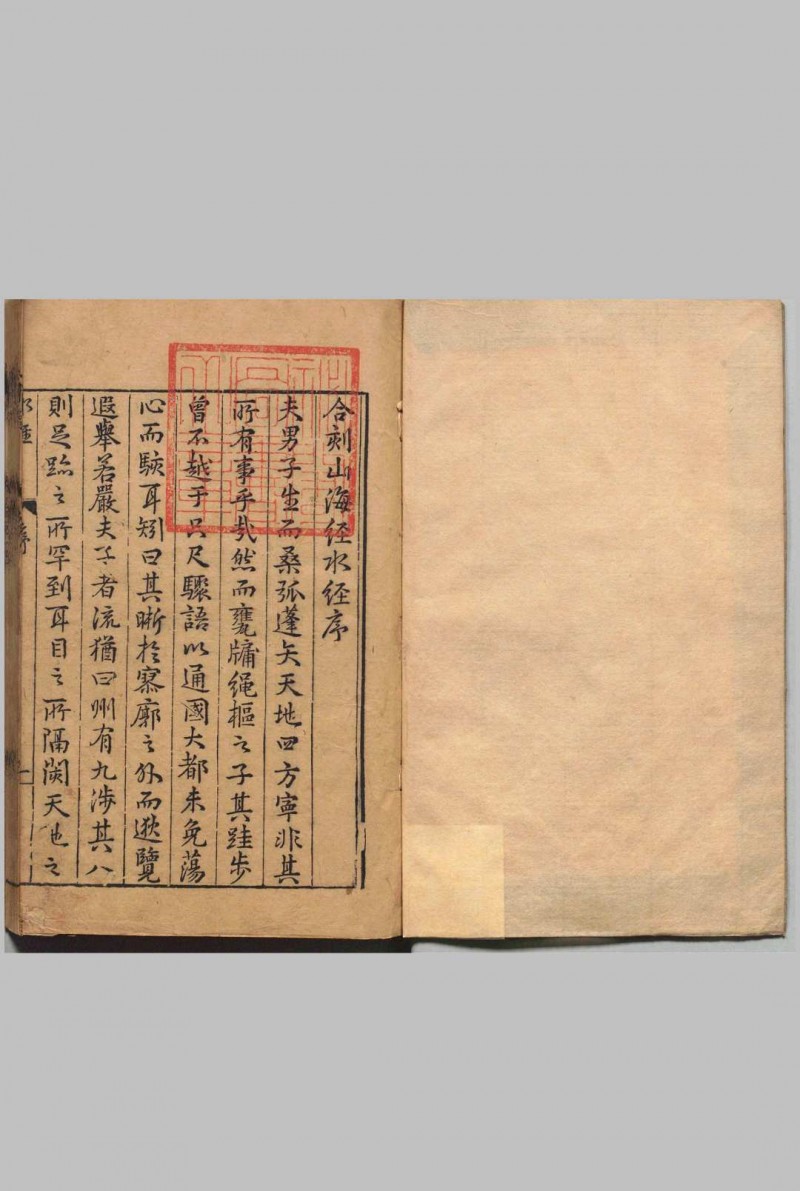 合刻山海经水经序
夫男子生而桑弧蓬矢天地四方寧非其
所有事乎哉然而甕牖绳樞之子其跬步
曾不越于咫尺驟語以通國大都未免蕩
心而駭耳矧曰其晰扵寥廓之外而逖覽
遐舉若嚴夫子者流猶曰州有九涉其八
則足跡之所罕到耳目之所隔閡天地之
水經
序
一